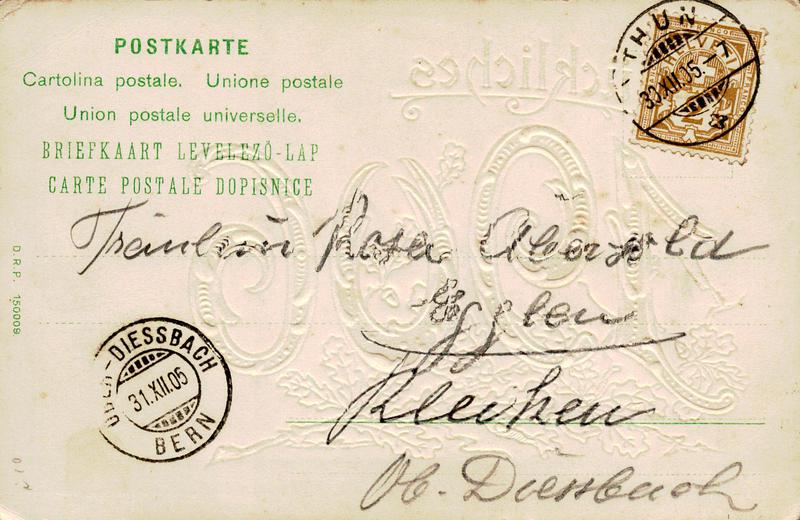 POSTKARTE
Cartolina postale. Unione postale
Union postale universelle.
BRIEFKAART LEVELEZÖ-LAP
CARTE POSTALE DOPISNICE
THUN
30.XII.05.-7
Glückliches
1906
Fräulein Rosa Abersold
Egglen
Kleiken
Ob. Diessbach
OBER-DIESSBACH
31.XII.05
BERN
D.R.P. 150009